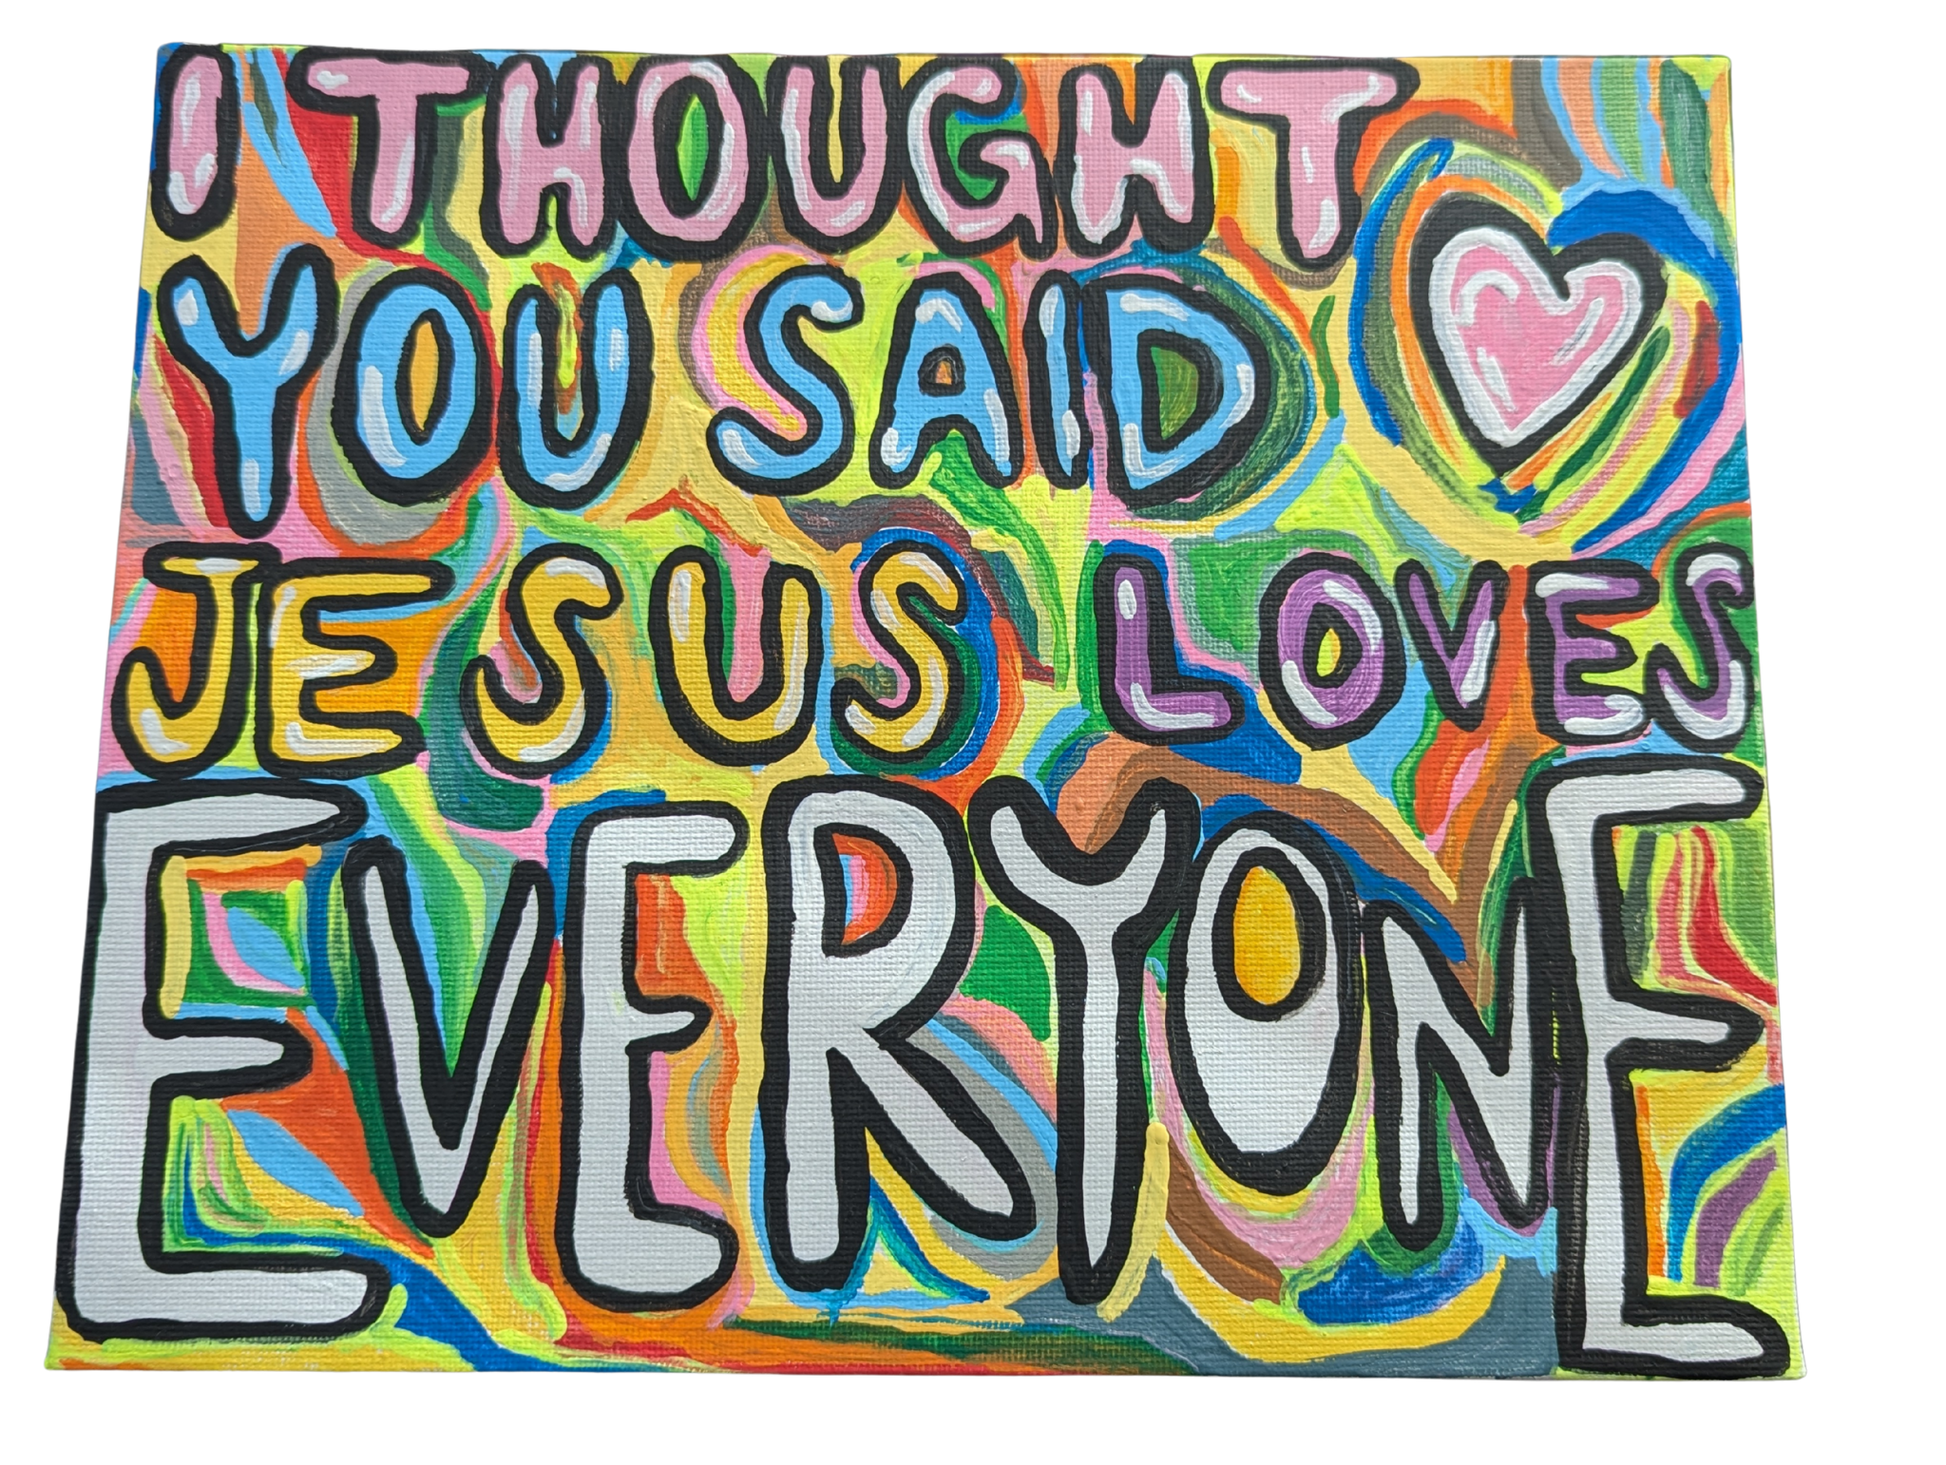 I THOUGHT
YOU SAID
JESUS LOVES
EVERYONE